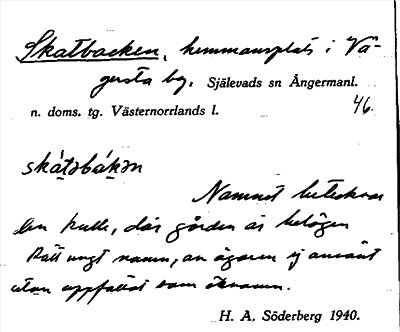 Skatbacken, hemmansplats i Vå-
gersta by. Själevads sn Ångermanl.
n. doms. tg. Västernorrlands l. 46.
skátəbákən
Namnet betecknar
en kulle, där gården är belägen
Rätt ungt namn, av ägaren ej använt
utan uppfattat som öknamn.
H. A. Söderberg 1940.